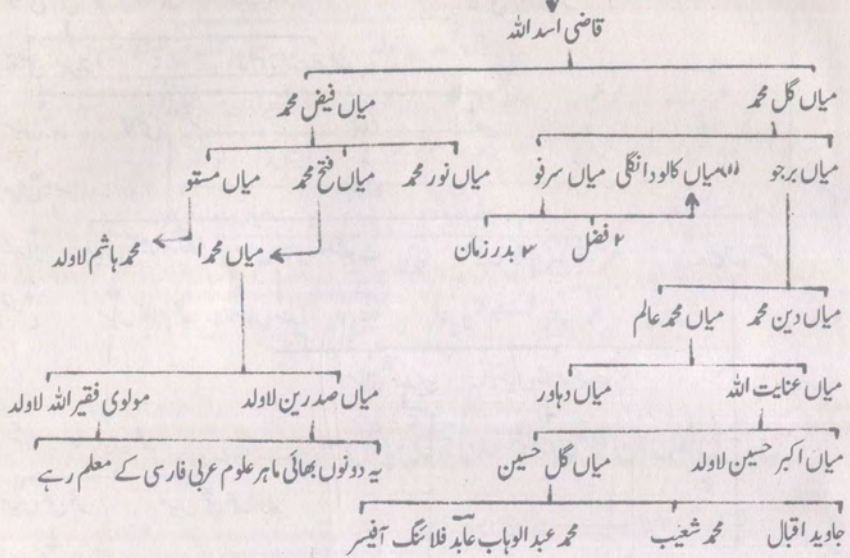 قاضی اسد اللہ
میاں گل محمد میاں فیض محمد
میاں برجو (۱) میاں کالودانگلی میاں سرفو میاں نور محمد میاں فتح محمد میاں مستو
۲ فضل ۳ بدر زمان میاں محمدا محمد ہاشم لاولد
میاں دین محمد میاں محمد عالم
میاں عنایت اللہ میاں دہاور میاں صدرین لاولد مولوی فقیر اللہ لاولد
میاں اکبر حسین لاولد میاں گل حسین یہ دونوں بھائی ماہر علوم عربی فارسی کے معلم رہے
جاوید اقبال محمد شعیب محمد عبد الوہاب عابد فلائنگ آفیسر